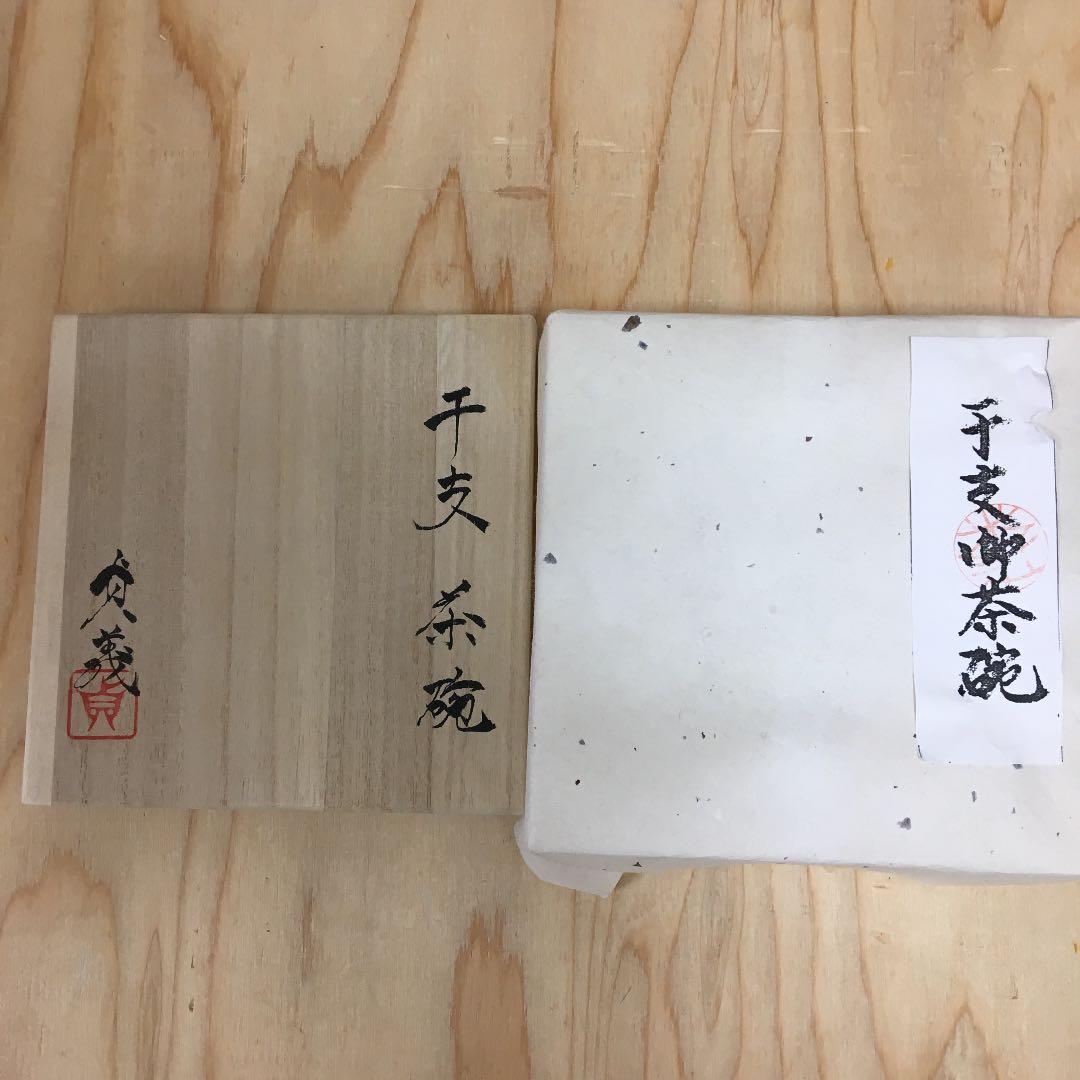 干支 茶碗
貞義
貞
干支御茶碗